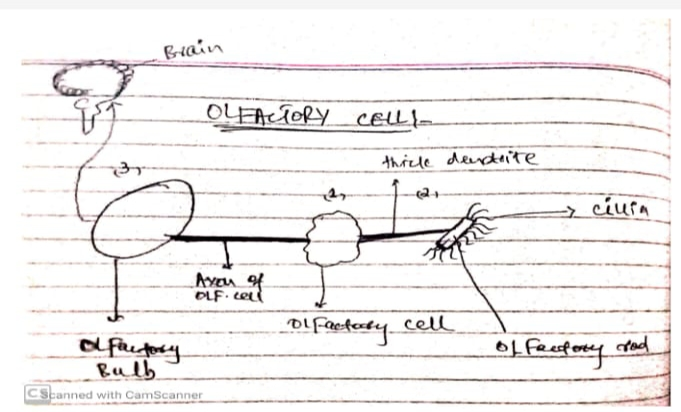 Brain
OLFACTORY CELL
thick dendrite
(3)
(1)
(2)
cilia
Axon of
OLF. cell
Olfactory cell
Olfactory rod
Olfactory
Bulb
CS Scanned with CamScanner